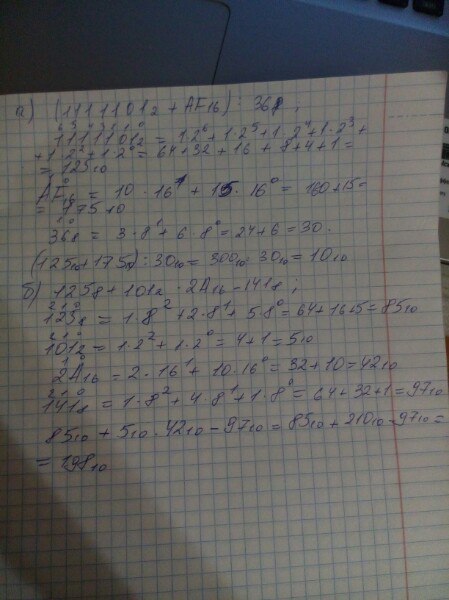 а) (1111101₂ + AF₁₆) : 36₈ ;
6 5 4 3 2 1 0
1111101₂ = 1·2⁶ + 1·2⁵ + 1·2⁴ + 1·2³ +
+ 1·2² + 1·2⁰ = 64 + 32 + 16 + 8 + 4 + 1 =
= 125₁₀
1 0
AF₁₆ = 10 · 16¹ + 15 · 16⁰ = 160 + 15 =
= 175₁₀
1 0
36₈ = 3·8¹ + 6·8⁰ = 24 + 6 = 30.
(125₁₀ + 175₁₀) : 30₁₀ = 300₁₀ : 30₁₀ = 10₁₀
б) 125₈ + 101₂ · 2A₁₆ - 141₈ ;
2 1 0
125₈ = 1·8² + 2·8¹ + 5·8⁰ = 64 + 16 + 5 = 85₁₀
2 1 0
101₂ = 1·2² + 1·2⁰ = 4 + 1 = 5₁₀
1 0
2A₁₆ = 2·16¹ + 10·16⁰ = 32 + 10 = 42₁₀
2 1 0
141₈ = 1·8² + 4·8¹ + 1·8⁰ = 64 + 32 + 1 = 97₁₀
85₁₀ + 5₁₀ · 42₁₀ - 97₁₀ = 85₁₀ + 210₁₀ - 97₁₀ =
= 198₁₀